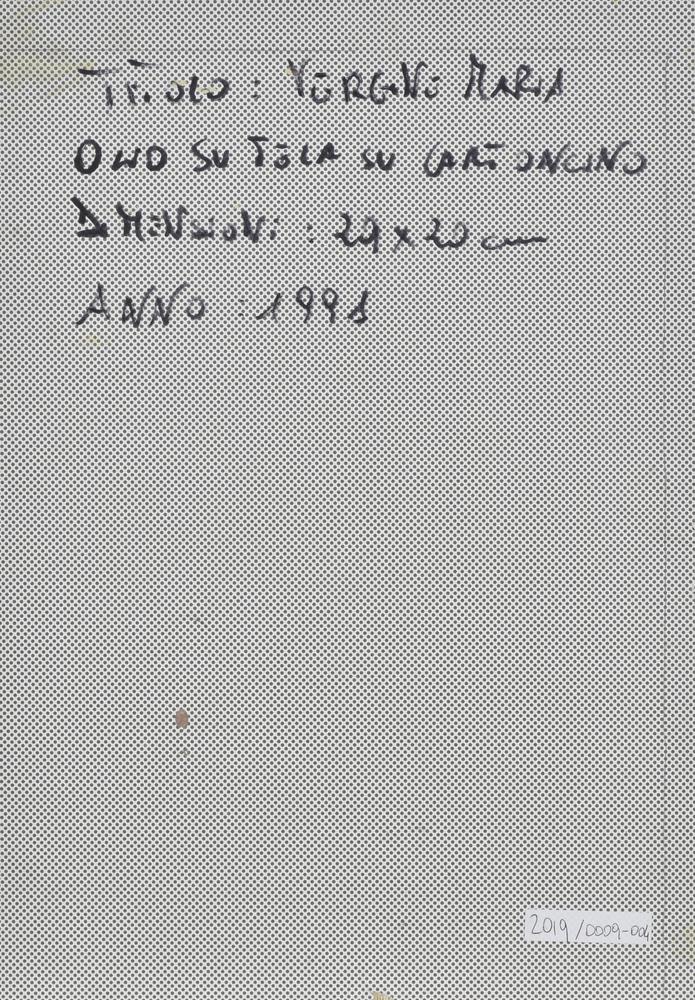 TITOLO : VERGINE MARIA
OLIO SU TELA SU CARTONCINO
DIMENSIONI : 29 x 20 cm
ANNO : 1991
2019/0009-004